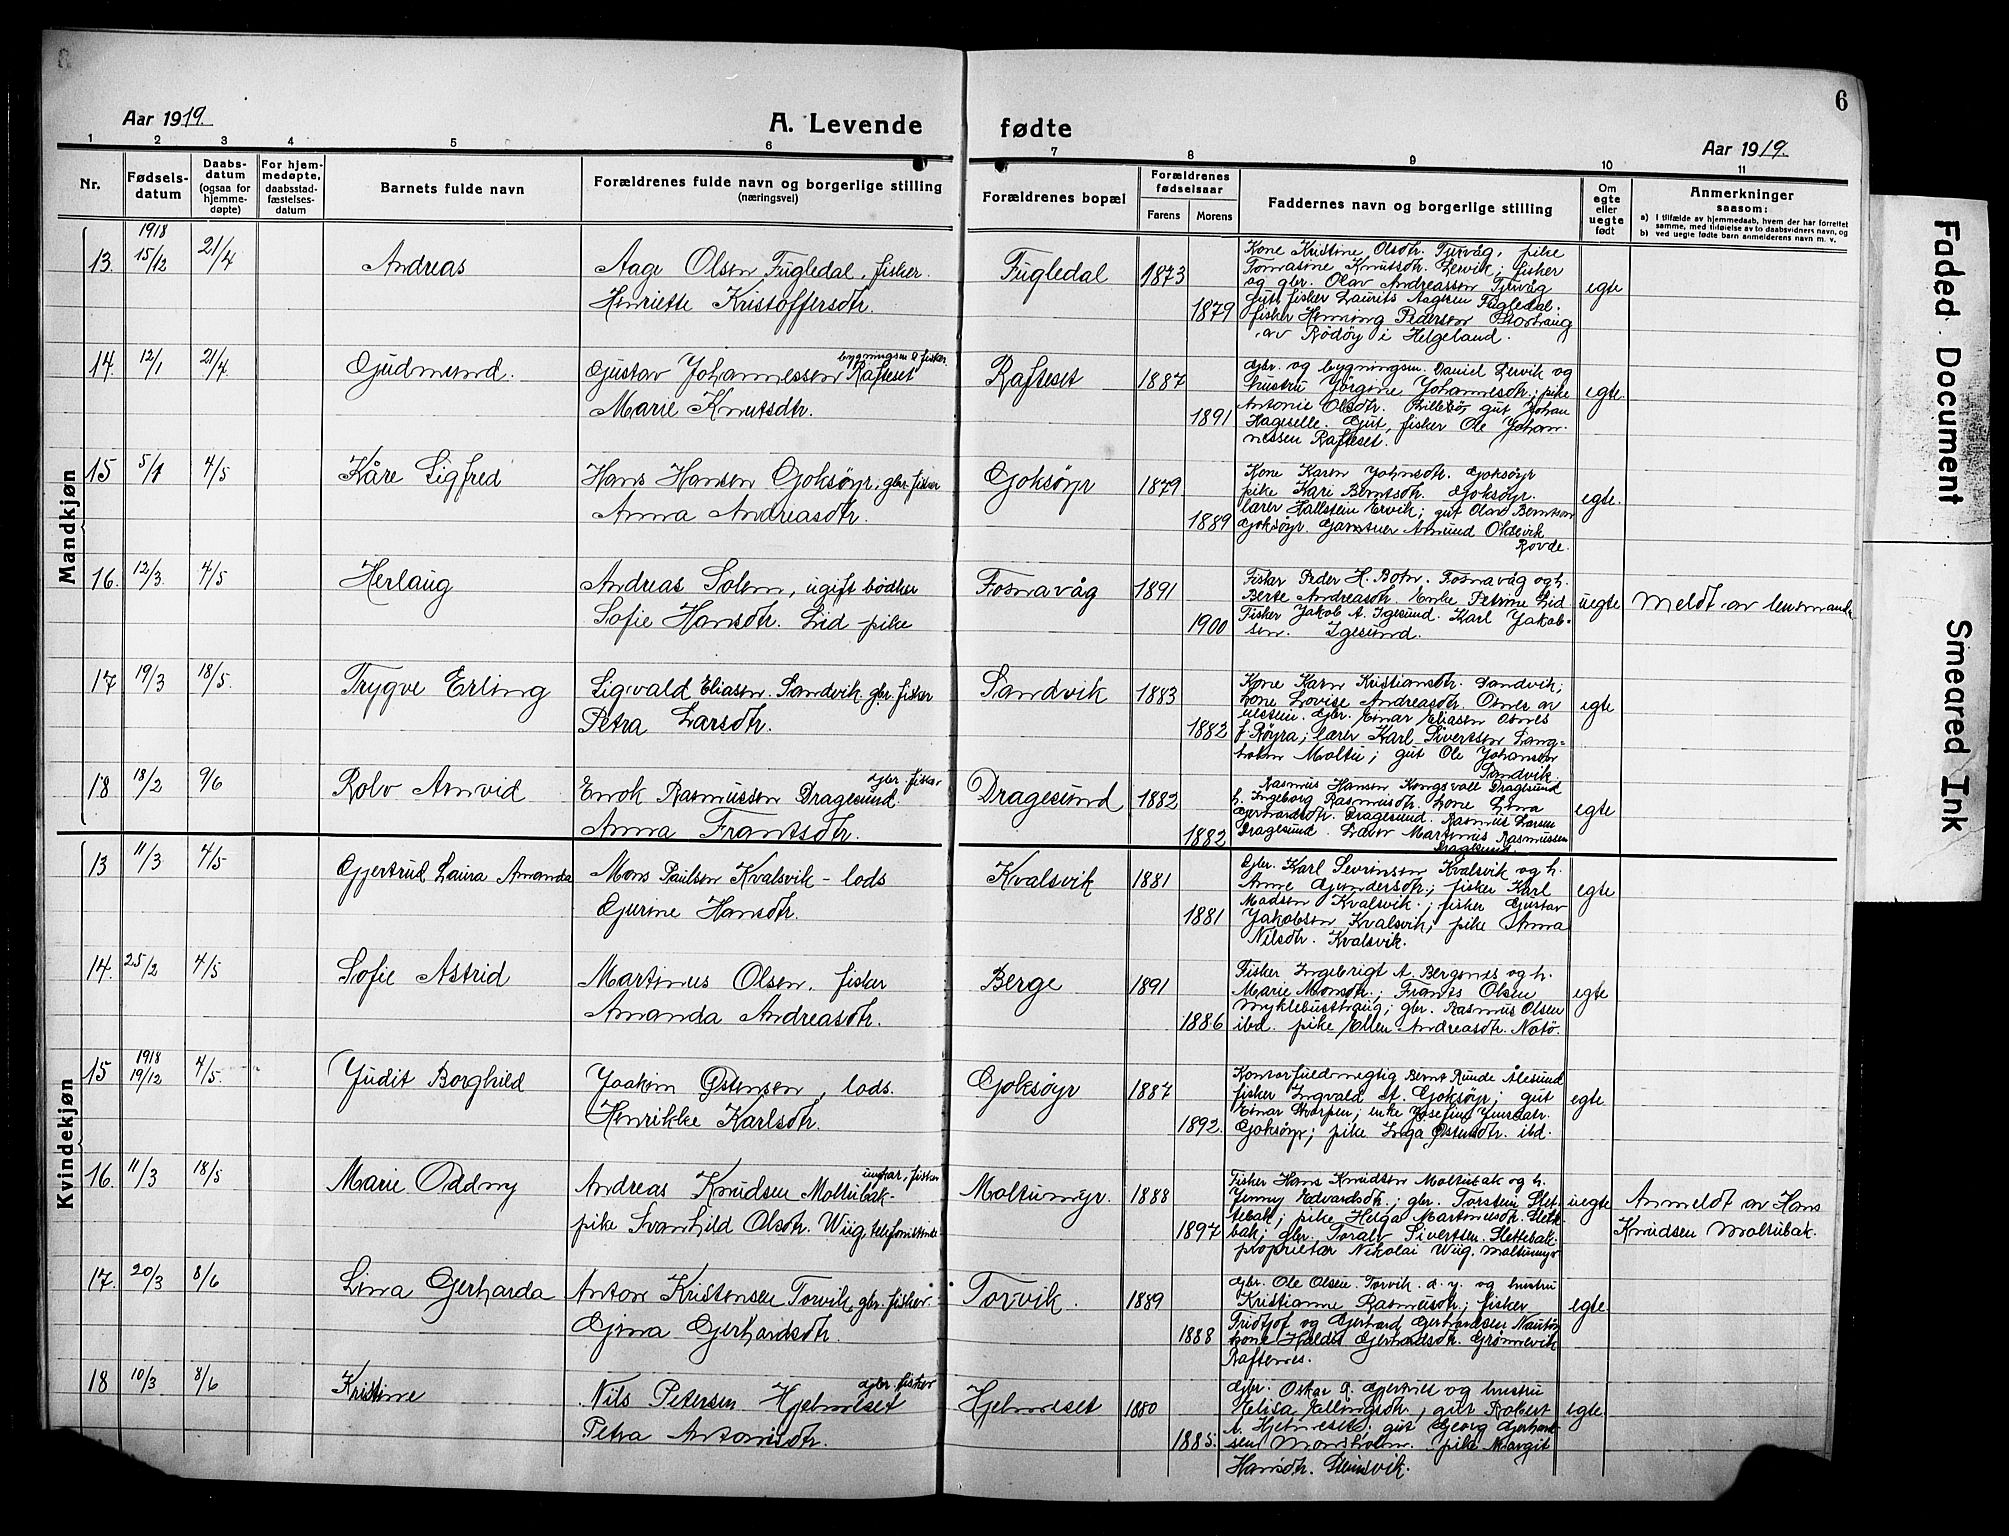 6
Aar 1919.
A. Levende fødte
Aar 1919.
1 2 3 4 5 6 7 8 9 10 11
Nr.
Fødsels-
datum
Daabs-
datum
(ogsaa for
hjemme-
døpte)
For hjem-
medøpte,
daabsstad-
fæstelses-
datum
Barnets fulde navn
Forældrenes fulde navn og borgerlige stilling
(næringsvei)
Forældrenes bopæl
Forældrenes
fødselsaar
Farens Morens
Faddernes navn og borgerlige stilling
Om
egte
eller
uegte
født
Anmerkninger
saasom:
a) I tilfælde av hjemmedaab, hvem der har forrettet
samme, med tilføielse av to daabsvidners navn, og
b) ved uegte fødte barn anmelderens navn m. v.
Mandkjøn
13. 1918 15/12 21/4 Andreas
Aage Olsen Fugledal, fisker.
Henriette Kristoffersdtr.
Fugledal 1873 1879
Kone Kristine Olsdtr. Tjervåg, pike
Tomasine Knutsdtr. Lervik; fisker
og gbr. Olav Andreassen Tjervåg
gutt fisker Laurits Aagesen Fugledal.
fisker Henning Pedersen Storhaug
av Rödöy i Helgeland.
egte
14. 12/1 21/4. Gudmund.
bygningsm & fisker.
Gustav Johannessen Rafteset
Marie Knutsdtr.
Rafteset 1887 1891
gbr. og bygningsm. Daniel Lervik og
hustru Jörgine Johannesdtr; pike
Antonie Olsdtr. gut Johan
Hageselle. Gut, fisker Ole Johan-
nessen Rafteset.
egte.
15 5/1 4/5 Kåre Sigfred
Hans Hansen Goksöyr, gbr. fisker
Anna Andreasdtr.
Goksöyr 1879 1889
Kone Karen Johnsdtr. Goksöyr
pike Kari Berntsdtr. Goksöyr.
lærer Hallstein Ervik; gut Olav Berntsen
Goksöyr. Gartner Amund
Rovde.
egte.
16. 12/3. 4/5 Herlaug
Andreas Solem, ugift bödker
Sofie Hansdtr. Lid - pike
Fosnavåg 1891 1900
Fisker Peder H. Botn. Fosnavåg og h.
Berte Andreasdtr. Enke Petrine Lid
Fisker Jakob A. Igesund. Karl Jakob-
sen. Igesund.
uegte Meldt av lensmand
17 19/3 18/5. Trygve Erling
Sigvald Eliasen Sandvik. gbr. fisker
Petra Larsdtr.
Sandvik 1883 1882
Kone Karn Kristiansdtr. Sandvik;
kone Lovise Andreasdtr. Osnes av
ulstein. gbr. Einar Eliasen Osnes
f. Röyra; lærer Karl Sivertsen Lang-
holm Moltu; gut Ole Johansen
Sandvik.
egte
18 18/2 9/6 Rolv Arnvid
gbr. fisker
Enok Rasmussen Dragesund.
Anna Frantsdtr.
Dragesund 1882 1882
Rasmus Hansen Kongsvoll Dragesund
h. Ingeborg Rasmusdtr. kone Lina
Gerhardsdtr. Dragesund. Rasmus Larsen
Dragesund. Martinus Rasmussen
Dragesund.
egte
Kvindekjøn
13 11/3 4/5 Gjertrud Laura Amanda
Mons Paulsen Kvalsvik - lods
Gurine Hansdtr.
Kvalsvik 1881 1881
Gbr. Karl Sevrinsen Kvalsvik og h.
Anne Gundersdtr; fisker Karl
Madsen Kvalsvik.; fisker Gustav
Jakobsen Kvalsvik; pike Anna
Nilsdtr. Kvalsvik.
egte
14. 25/2 4/5 Sofie Astrid
Martinus Olsen. fisker
Amanda Andreasdtr.
Berge 1891 1886
Fisker Ingebrigt A. Bergsnes og h.
Marie Monsdtr.; Frants Olsen
Myklebusthaug; gbr. Rasmus Olsen
ibd. pike Ellen Andreasdtr. Notö.
egte
15 1918 19/12 4/5. Judit Borghild
Joakim Østensen, lods.
Henrikke Karlsdtr.
Goksöyr 1887 1892.
Kontorfuldmegtig Bernt Runde Ålesund
fisker Ingvald St. Goksöyr; gut
Einar; enke Josefine
Goksöyr; pike Inga Østensdtr. ibd.
egte.
16. 11/3 18/5 Marie Oddny
ungkar, fisker
Andreas Knudsen Moltubak-
pike Svanhild Olsdtr. Wiig, telefonistinde
Moltumyr. 1888 1897
Fisker Hans Knudsen Moltubak og h.
Jenny Edvardsdtr.; gbr. Torstein Slet-
tebak; pike Helga Martinusdtr. Slette-
bak; gbr. Toralv Sivertsen. Slettebak.
proprietær Nikolai Wiig. Moltumyr
uegte Anmeldt av Hans
Knudsen Moltubak.
17. 20/3 8/6 Lina Gerharda
Anton Kristensen Torvik gbr. fisker.
Gina Gerhardsdtr
Torvik. 1889 1888
gbr. Ole Olsen. Torvik. d. y. og hustru
Kristianne Rasmusdtr; fisker
Fridtjof og Gerhard Gerhardsen Nautön
kone Haldis Gerhardsdtr. Grönnevik
Raftenes.
egte.
18 10/3 8/6 Kristine
gbr. fisker
Nils Petersen Hjelmeset
Petra Antonsdtr.
Hjelmeset 1880 1885.
gbr. Oskar R. Gjertnes og hustru
Elisa Ellingsdtr, gut Robert
A. Hjelmeset; gut Georg Gerhard-
sen Monsholm. pike Margit
Hansdtr. Steinsvik.
egte.
Faded Document
Smeared Ink